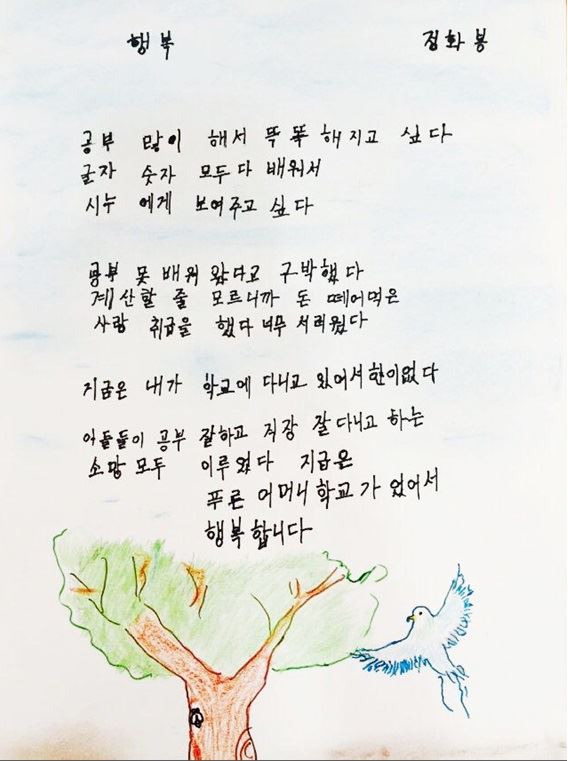 행복 정화봉
공부 많이 해서 뚝똑 해지고 싶다
글자 숫자 모두다 배워서
시누 에게 보여주고 싶다
공부 못 배워 왔다고 구박했다
계산할 줄 모르니까 돈 떼어먹은
사람 취급을 했다 너무 서러웠다
지금은 내가 학교에 다니고 있어서 한이없다
아들들이 공부 잘하고 직장 잘 다니고 하는
소망 모두 이루었다 지금은
푸른 어머니 학교가 있어서
행복합니다